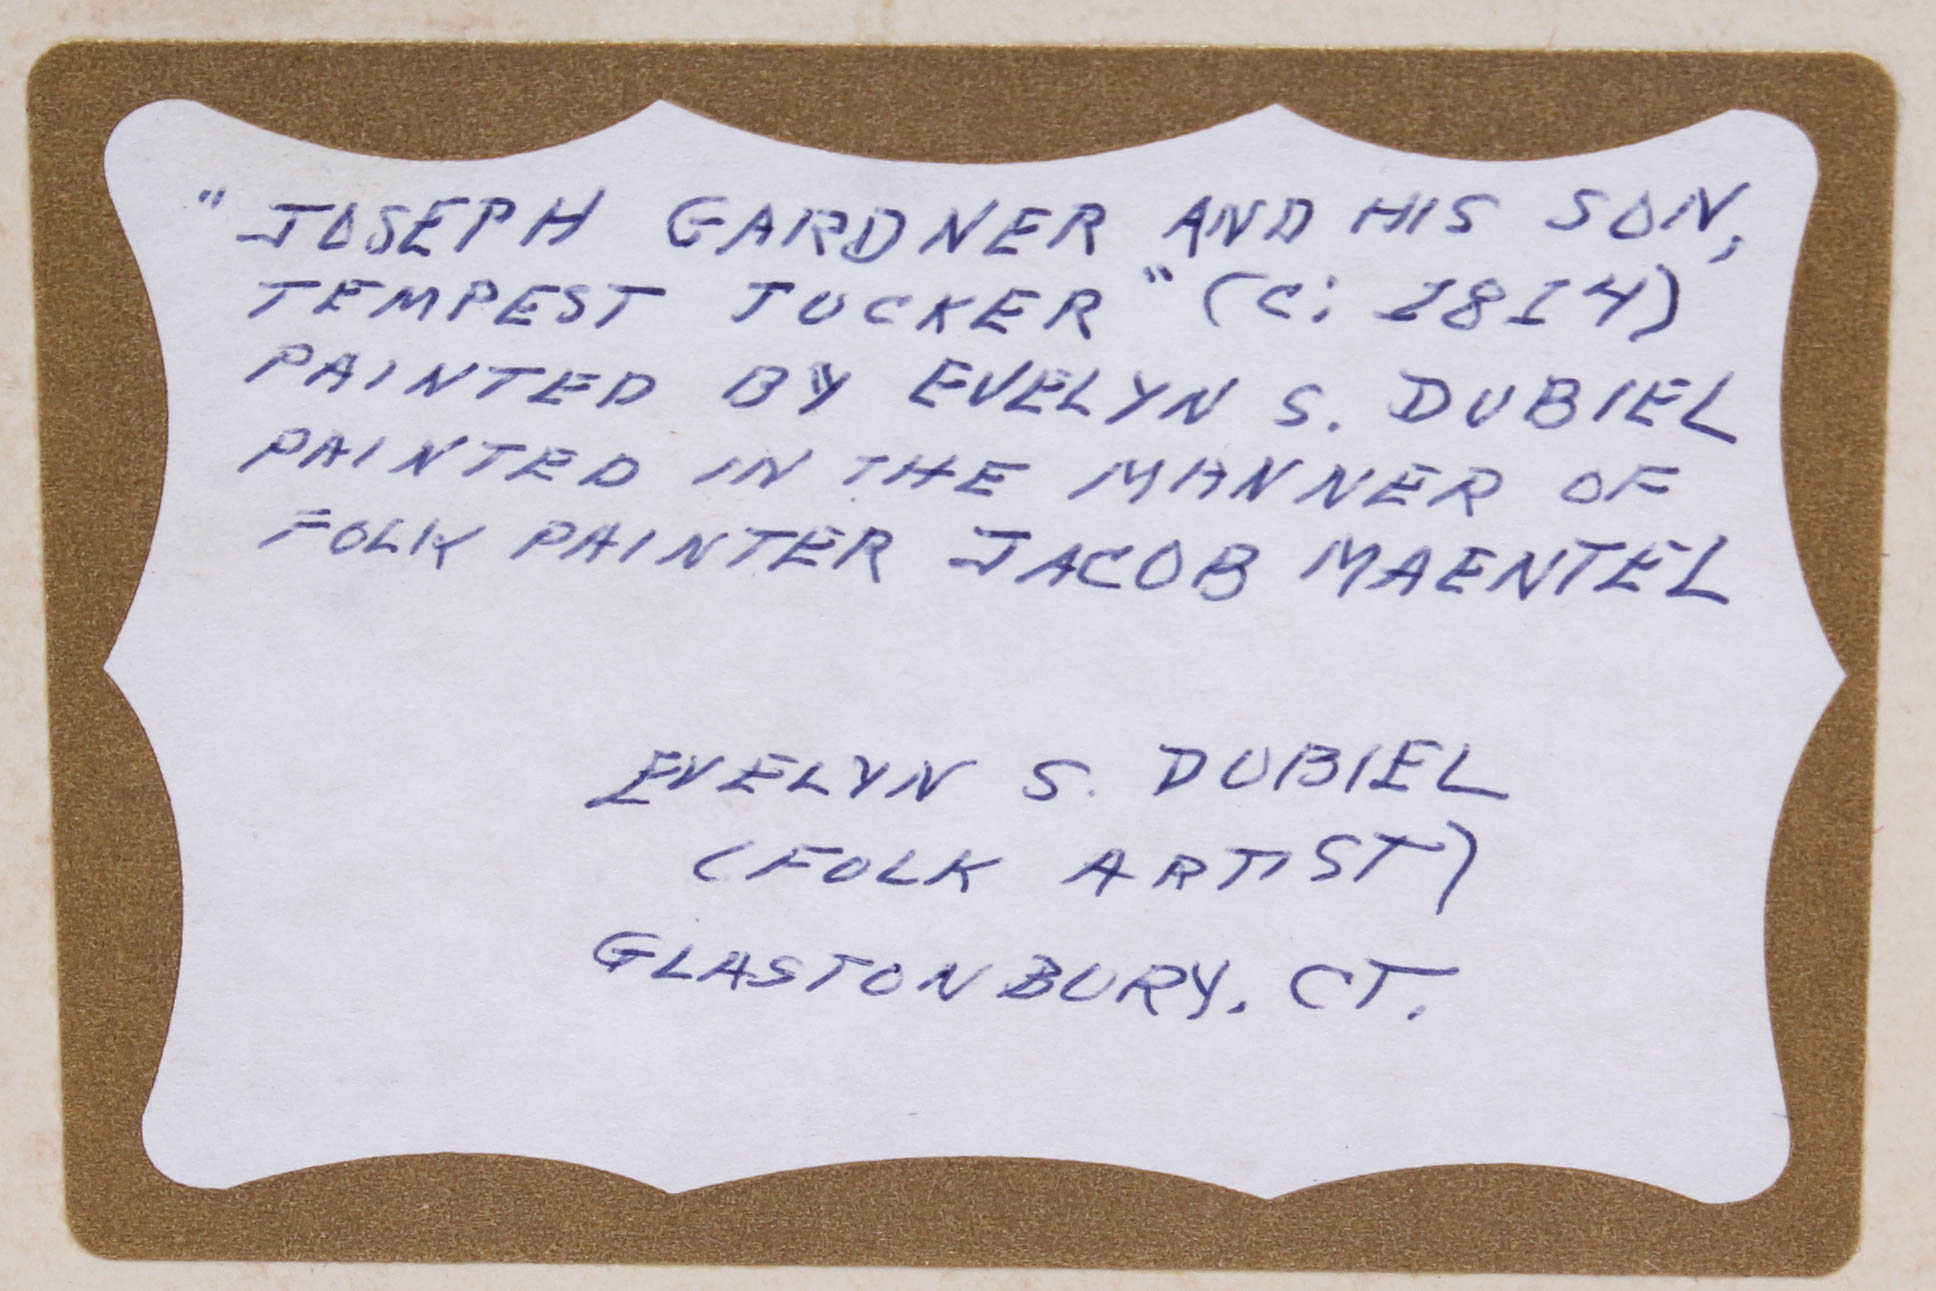 "JOSEPH GARDNER AND HIS SON,
TEMPEST TUCKER" (C: 1814)
PAINTED BY EVELYN S. DUBIEL
PAINTED IN THE MANNER OF
FOLK PAINTER JACOB MAENTEL
EVELYN S. DUBIEL
(FOLK ARTIST)
GLASTONBURY, CT.